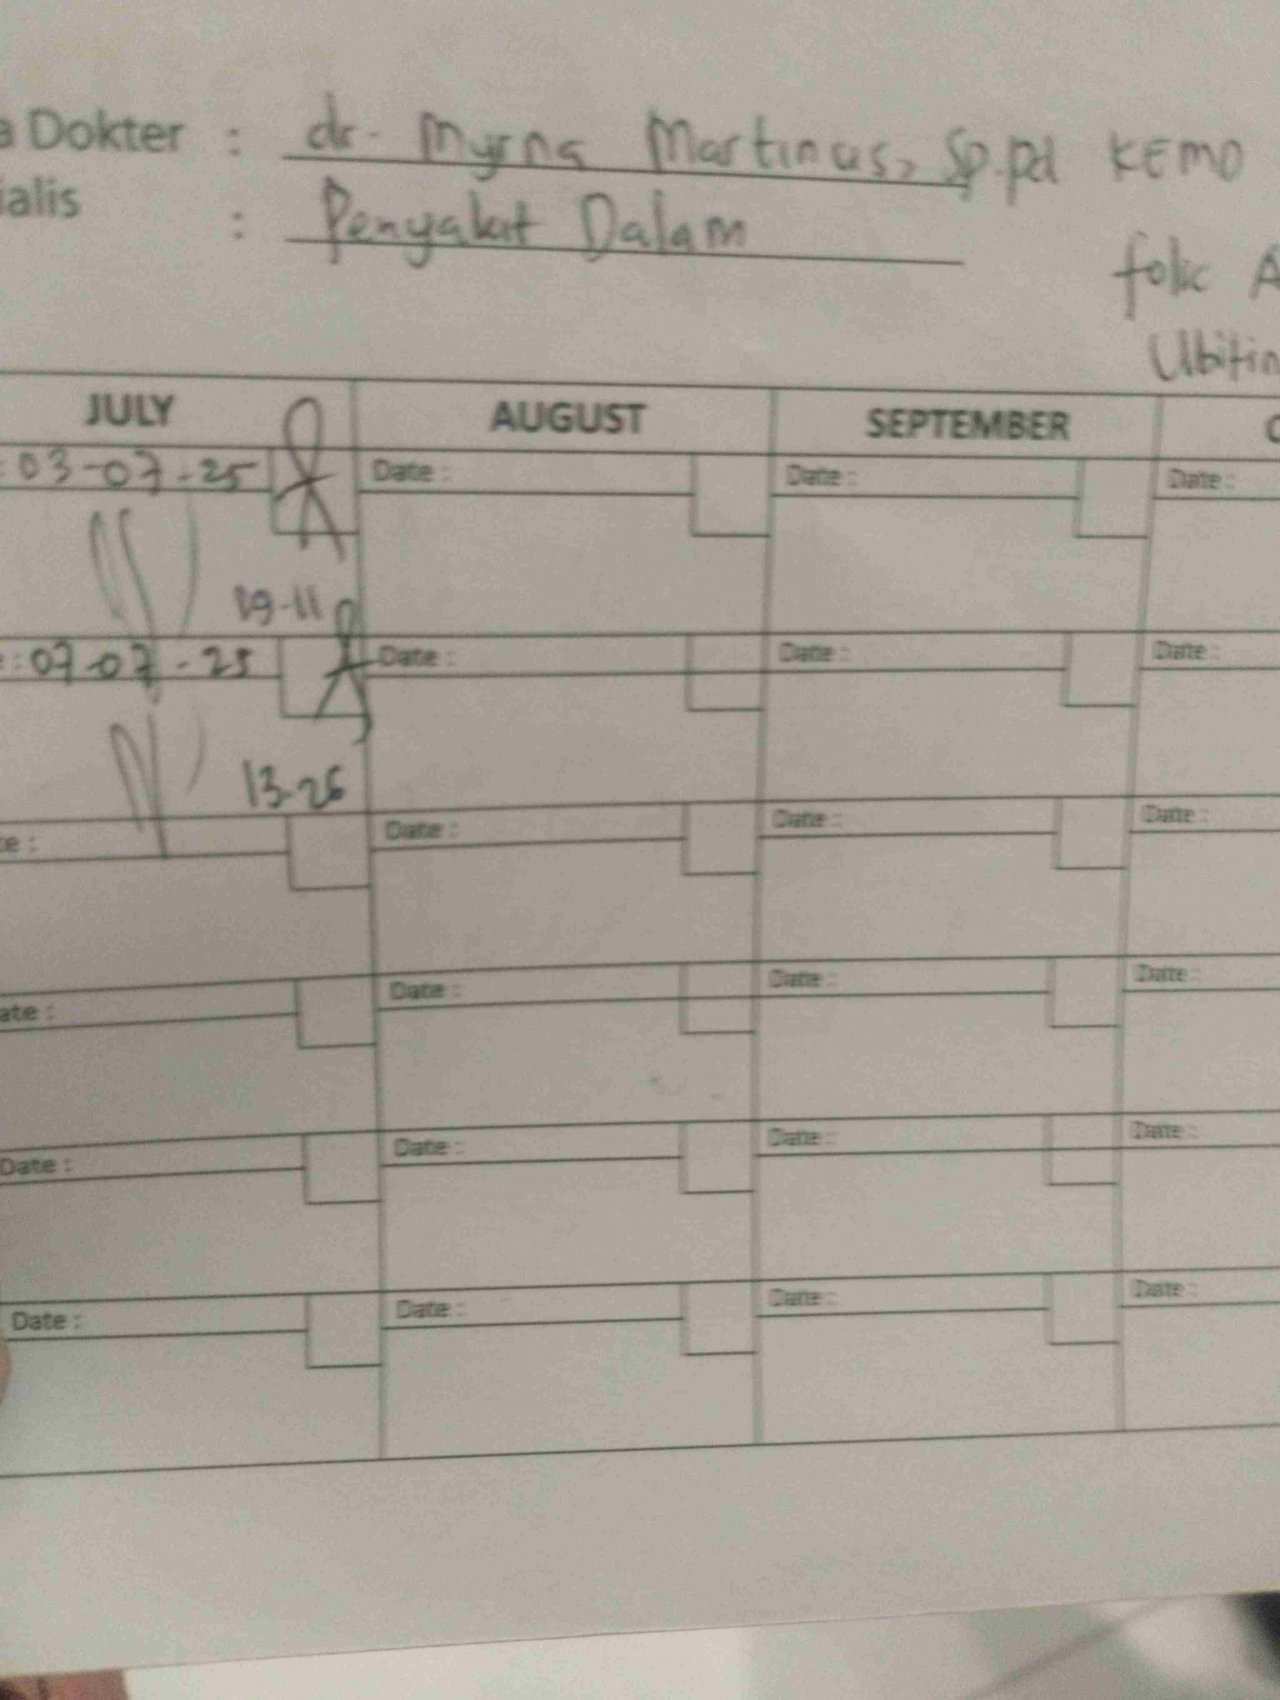 a Dokter : dr. Myrna Martinus, Sp.pd KEMO
ialis : Penyakit Dalam
folic A
Ubitin
JULY AUGUST SEPTEMBER
: 03-07-25 Date : Date : Date :
19-11
e : 07-07-25 Date : Date : Date :
13-26
te : Date : Date : Date :
ate : Date : Date : Date :
Date : Date : Date : Date :
Date : Date : Date : Date :